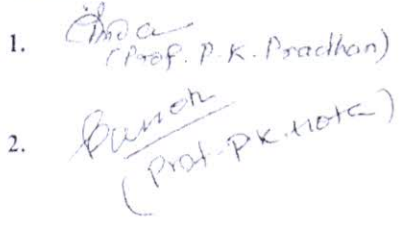 1.
(Prof. P. K. Pradhan)
2.
(Prof. P K. Hota)